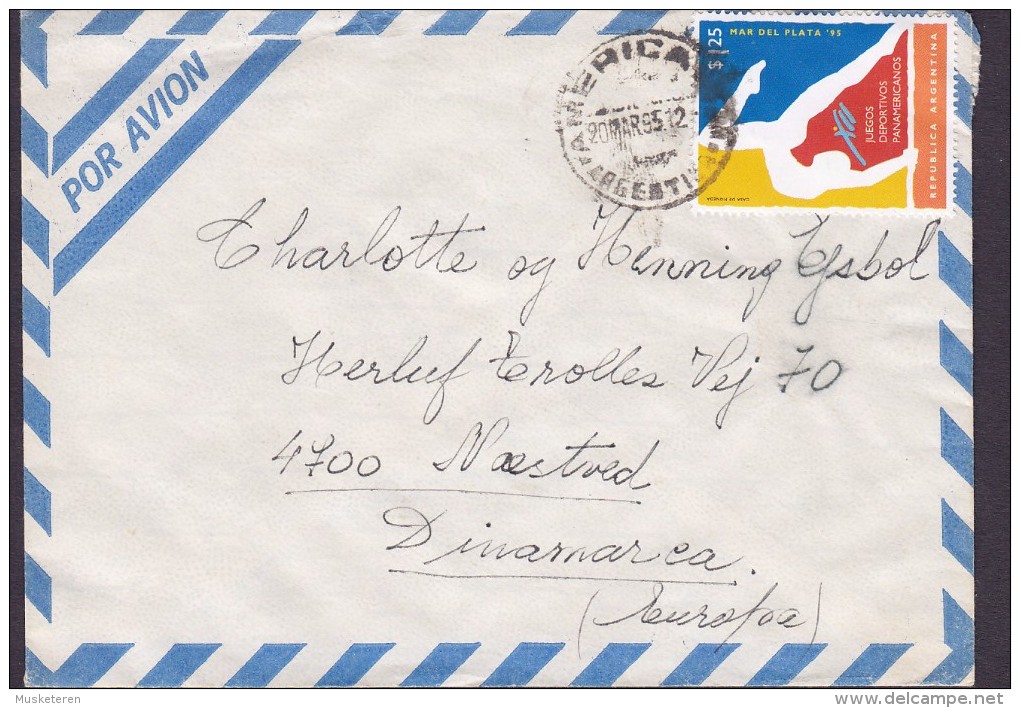 POR AVION
AMERICA
20MAR95 12
ARGENTI
$1,25
MAR DEL PLATA '95
JUEGOS
DEPORTIVOS
PANAMERICANOS
REPUBLICA ARGENTINA
CASA DE MONEDA
Charlotte og Henning Ejsbol
Herluf Trolles Vej 70
4700 Næstved
Dinamarca.
(Europa)
Musketeren
delcampe.net